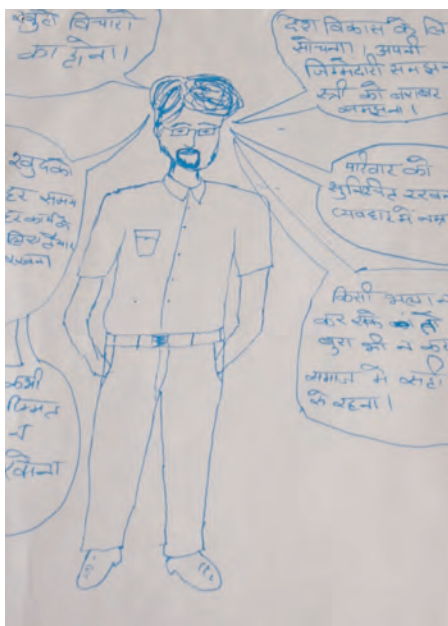 खुले विचारो
का होना।
देश विकास के लि
सोचना।, अपनी
जिम्मेदारी समझ
स्त्री को बराबर
समझना।
खुदको
हर समय
हर कार्य के
लिए तैयार
रखना।
परिवार को
व्यवहार में नम्र
किसी भला न
कर सके तो
बुरा भी न कर
समाज में सही
से रहना।
कभी
हिम्मत
न
खोना